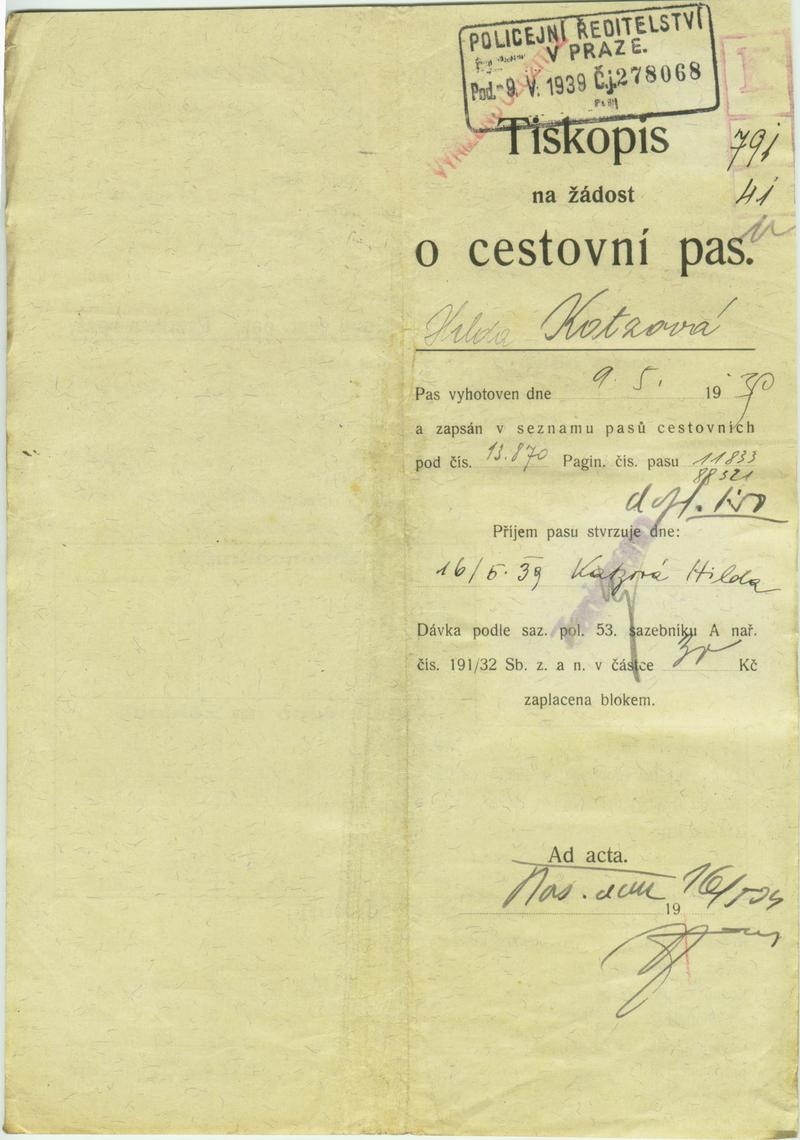 POLICEJNÍ ŘEDITELSTVÍ
V PRAZE.
Pod. 9. V. 1939 Č.j. 278068
Tiskopis
791
na žádost
41
o cestovní pas.
Hilda Kotzová
Pas vyhotoven dne 9. 5. 19 39
a zapsán v seznamu pasů cestovních
pod čís. 13.870 Pagin. čís. pasu 11833
88521
Příjem pasu stvrzuje dne:
16/5. 39 Katzová Hilda
Dávka podle saz. pol. 53. sazebníku A nař.
čís. 191/32 Sb. z. a n. v částce 30 Kč
zaplacena blokem.
Ad acta.
16/5 39
19